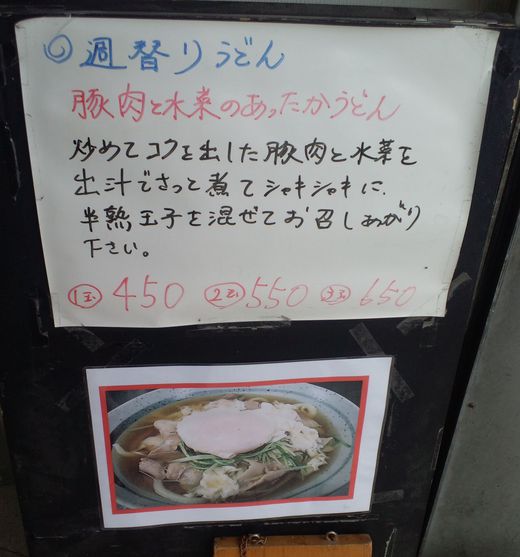 ◎週替りうどん
豚肉と水菜のあったかうどん
炒めてコクを出した豚肉と水菜を
出汁でさっと煮てシャキシャキに、
半熟玉子を混ぜてお召しあがり
下さい。
①玉 450 ②玉 550 ③玉 650